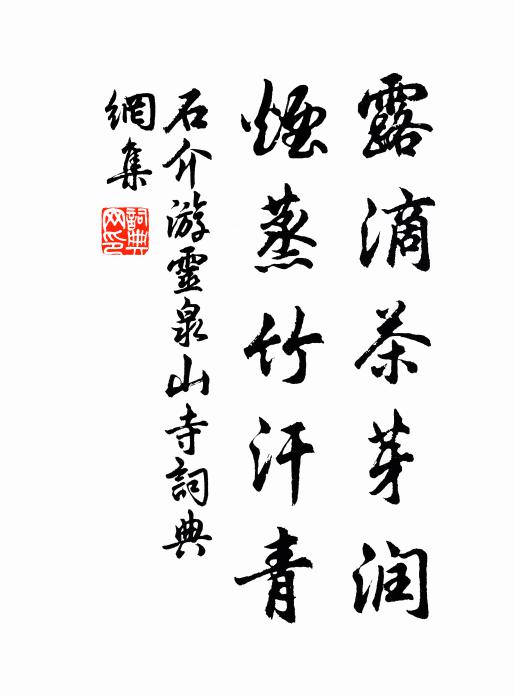 露滴茶芽润
煙蒸竹汗青
石介游靈泉山寺詞典
網集
詞典网印